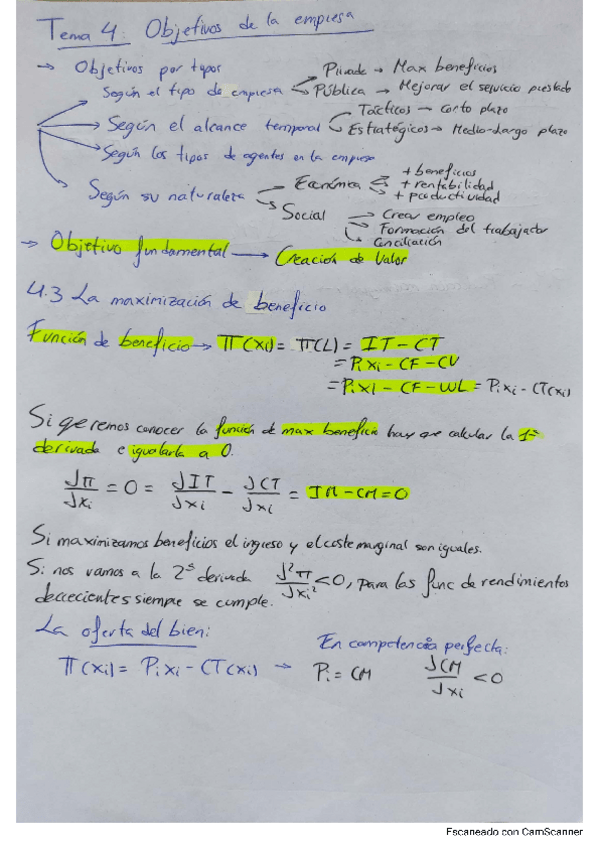 Tema 4: Objetivos de la empresa
→ Objetivos por tipos
Según el tipo de empresa → Privada → Max beneficios
→ Pública → Mejorar el servicio prestado
→ Según el alcance temporal → Tácticos → Corto plazo
→ Estratégicos → Medio-Largo plazo
→ Según los tipos de agentes en la empresa
Según su naturaleza → Económica → + beneficios
→ + rentabilidad
→ + productividad
→ Social → Crear empleo
→ Formación del trabajador
→ Conciliación
→ Objetivo fundamental → Creación de Valor
4.3 La maximización de beneficio
Función de beneficio → π(xi) = π(L) = IT - CT
= Pi xi - CF - CV
= Pi xi - CF - WL = Pi xi - CT(xi)
Si queremos conocer la función de max beneficio hay que calcular la 1ª
derivada e igualarla a 0.
∂π/∂xi = 0 = ∂IT/∂xi - ∂CT/∂xi = IM - CM = 0
Si maximizamos beneficios el ingreso y el coste marginal son iguales.
Si nos vamos a la 2ª derivada ∂²π/∂xi² < 0, para las func de rendimientos
siempre se cumple.
La oferta del bien:
En competencia perfecta:
π(xi) = Pi xi - CT(xi) → Pi = CM ∂CM/∂xi < 0
Escaneado con CamScanner